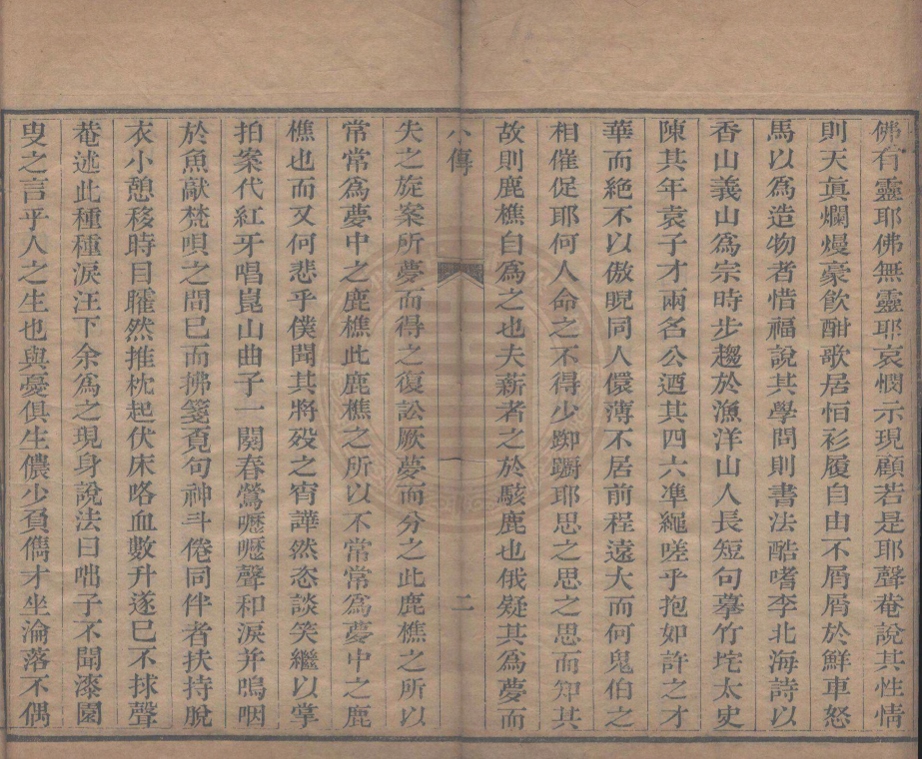 佛有靈耶佛無靈耶哀憫示現顧若是耶聲菴說其性情
則天眞爛熳豪飮酣歌居恒衫履自由不屑屑於鮮車怒
馬以爲造物者惜福說其學問則書法酷嗜李北海詩以
香山義山爲宗時步趨於漁洋山人長短句摹竹垞太史
陳其年袁子才兩名公遒其四六準繩嗟乎抱如許之才
華而絕不以傲睨同人儇薄不居前程遠大而何鬼伯之
相催促耶何人命之不得少踟躕耶思之思之思而知其
故則鹿樵自爲之也夫薪者之於駭鹿也俄疑其爲夢而
小傳
一
二
失之旋案所夢而得之復訟厥夢而分之此鹿樵之所以
常常爲夢中之鹿樵此鹿樵之所以不常常爲夢中之鹿
樵也而又何悲乎僕聞其將歿之宵譁然恣談笑繼以掌
拍案代紅牙唱崑山曲子一闋春鶯嚦嚦聲和淚并嗚咽
於魚鼔梵唄之間巳而拂箋覔句神斗倦同伴者扶持脫
衣小憩移時目矐然推枕起伏床咯血數升遂巳不捄聲
菴述此種種淚汪下余爲之現身說法曰咄子不聞漆園
叟之言乎人之生也與憂俱生儂少負儁才坐淪落不偶